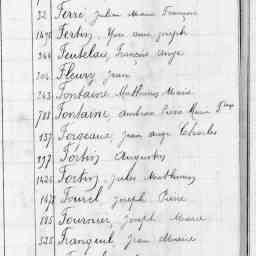 32 Ferré, Julien Marie François
1496 Fertin, Yve anne joseph
344 Feutelais, François ange
204 Fleury Jean
243 Fontaine Mathurin Marie
788 Fontaine, Ambroise Pierre Marie
137 Forgeaux, Jean ange Charles
397 Fortin Augustin
1426 Fortin, Jules Mathurin
Fourel Joseph Pierre
185 Fournier, Joseph Marie
525 Frangeul, Jean Marie